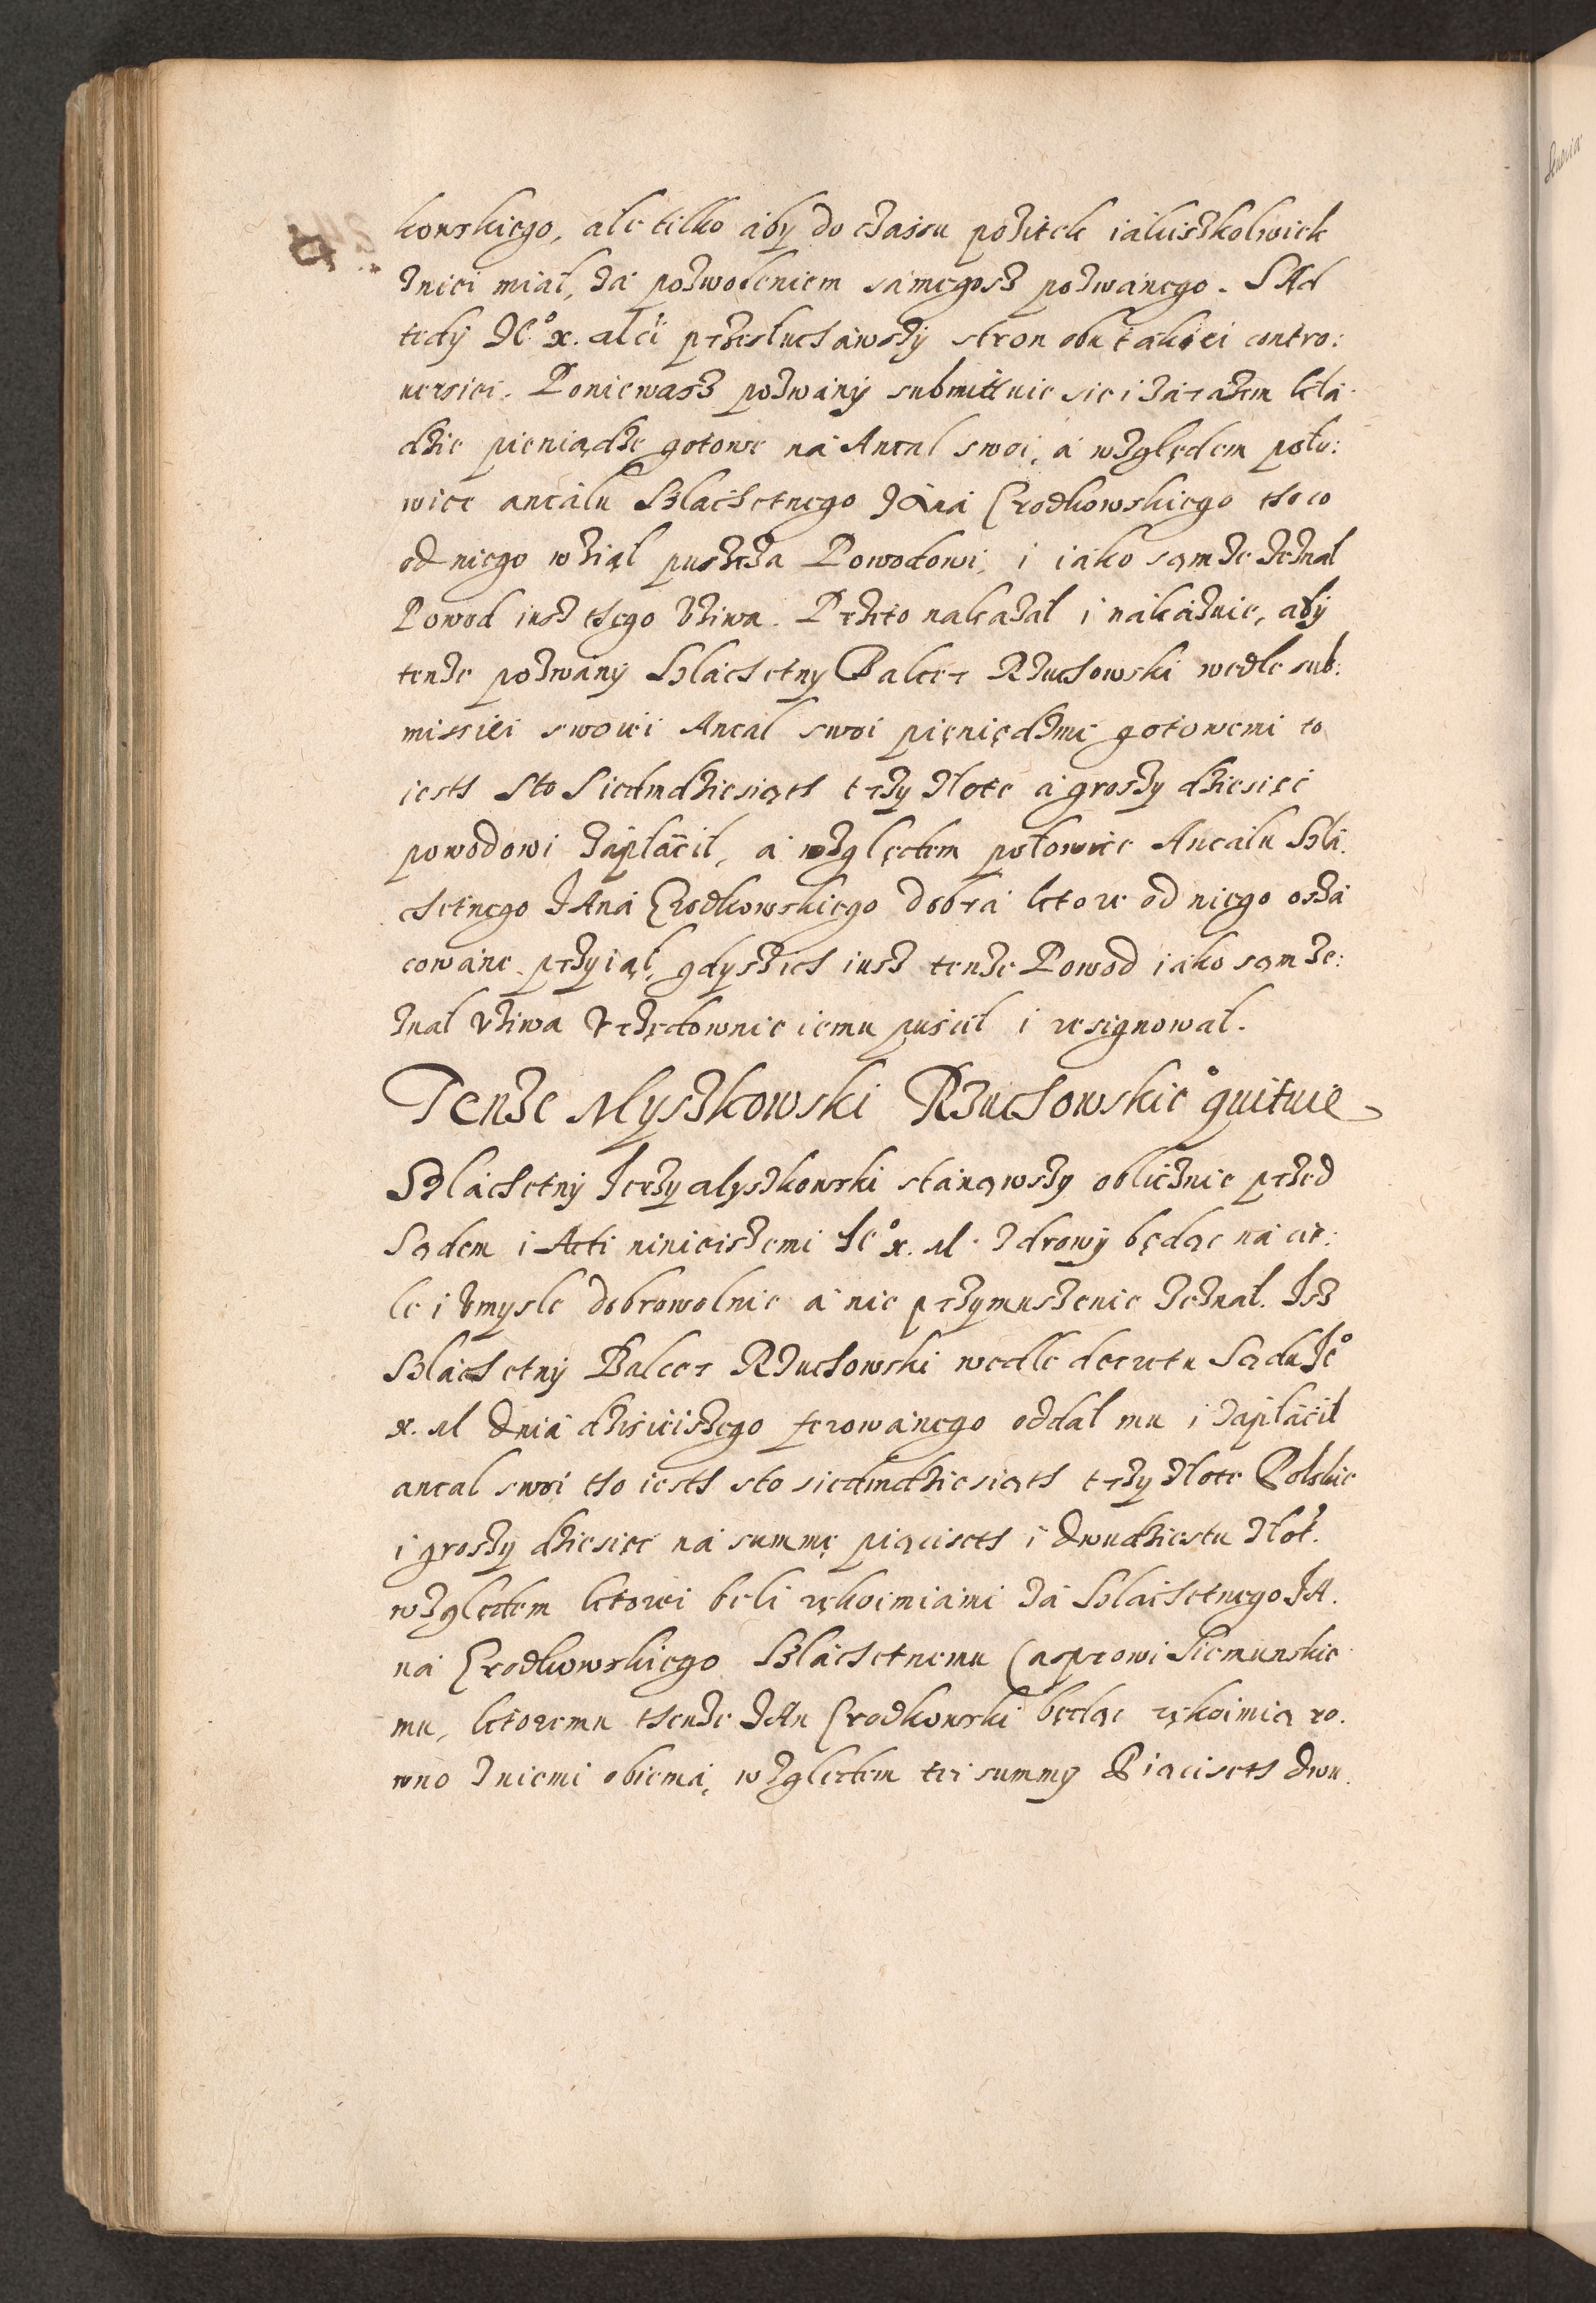 kowskiego, ale tilko aby do czassu pozitek iakiszkolwiek
zniei miał, za pozwoleniem samegosz pozwanego. SAd
tedy Je° x. Mci przesłuchawszy stron obu takiei contro:
uersiei. Poniewasz pozwany submittuie sie i zarazem kła
dzie pieniądze gotowe na Antal swoi, a względem poło:
wice antalu Szlachetnego JAna Czodkowskiego tho co
od niego wziął puszcza Powodowi, i iako sąm ze zeznał
Powod iusz thego Vziwa. Przeto nakazał i nakazuie, aby
tenze pozwany Slachetny Balcer Rzuchowski wedle sub:
missiei swoiei Antal swoi pieniędzmi gotowemi to
iesth Sto Siedmdziesiąth trzy złote a groszy dziesięc
powodowi zapłacił, a względem połowice Antalu Szla
chetnego JAna Czodkowskiego dobra ktore od niego osza
cowane przyiął, gdysz ich iusz tenze Powod iako sąm ze:
znał Vziwa Vrzędownie iemu puscił i resignował.
Tenze Myszkowski Rzuchowskie° quituie
Szlachetny Jerzy Myszkowski stanąwszy oblicznie przed
Sądem i Acti ninieiszemi Je° x. M. zdrowy będąc na cie:
le i Vmysle dobrowolnie a nie przymuszenie zeznał. Isz
Slachetny Balcer Rzuchowski wedle decretu Sądu Je°
x. M dnia dzisieiszego ferowanego oddał mu i zapłacił
antal swoi tho iesth sto siedmdziesiąth trzy złote Polskie
i groszy dziesięc na summę piąciseth i dwudziestu złot.
względem ktorei beli rękoimiami za Slachetnego JA.
na Czodkowskiego Szlachetnemu Casprowi Siemunskie
mu, ktoremu thenze JAn Czodkowski będąc rękoimią ro.
wno z niemi obiema, względem tei summy Piąciseth dwu